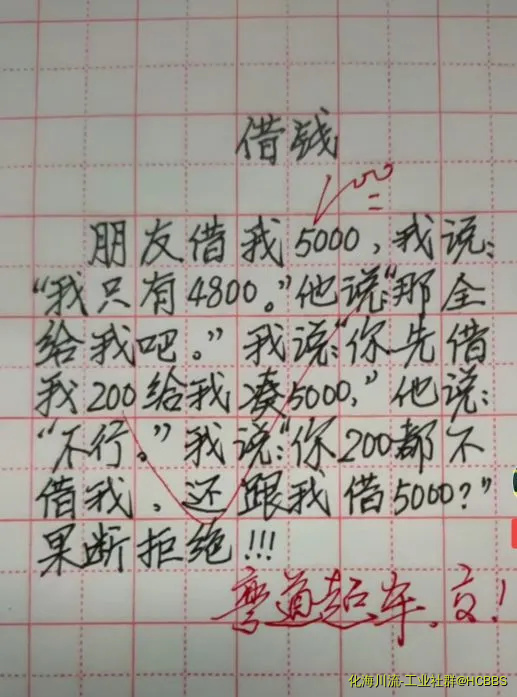 借钱
100
朋友借我5000,我说:
“我只有4800。”他说:“那全
给我吧。”我说:“你先借
我200给我凑5000,”他说:
“不行。”我说:“你200都不
借我,还跟我借5000?”
果断拒绝!!!
弯道超车,文!
化海川流-工业社群@HCBBS